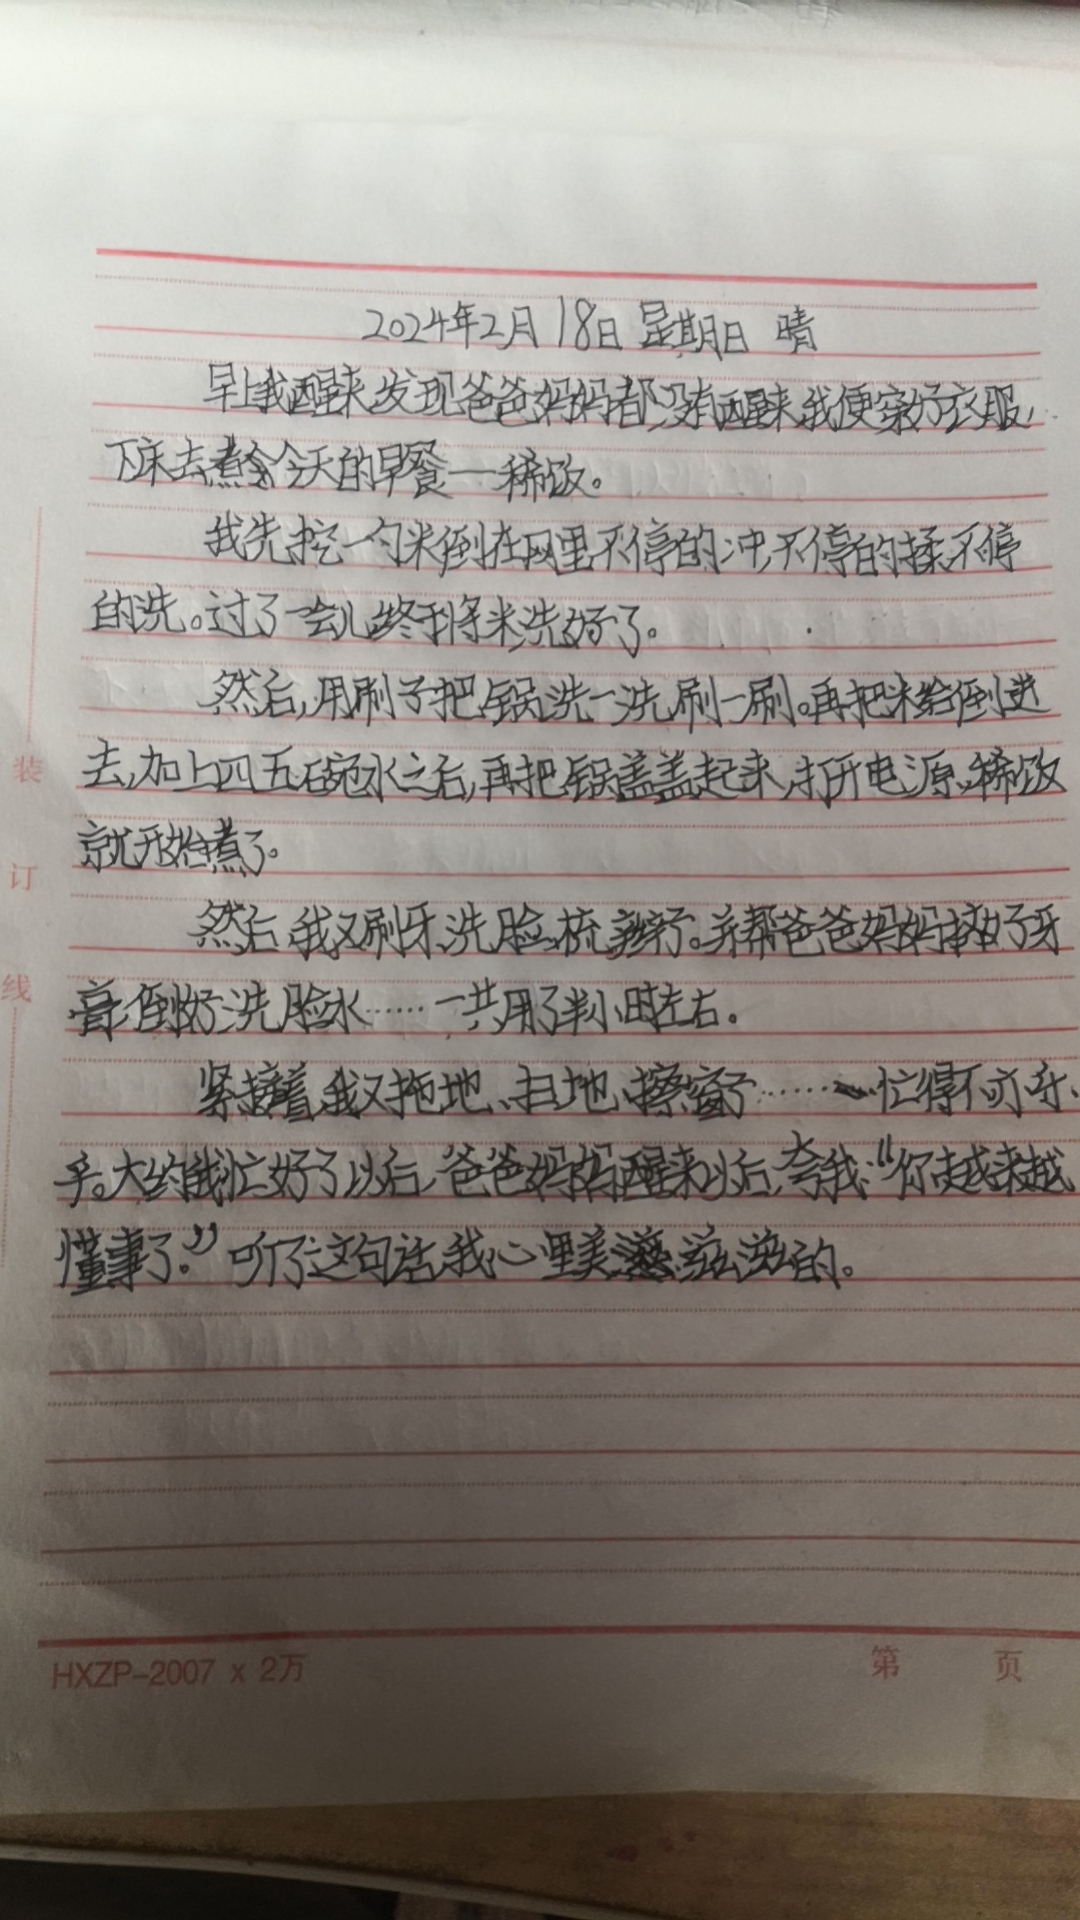 2024年2月18日 星期日 晴
早上我醒来,发现爸爸妈妈都没有醒来,我便穿好衣服,
下床去煮今天的早餐——稀饭。
我先挖一勺米倒在网里,不停的冲,不停的揉,不停
的洗。过了一会儿,终于将米洗好了。
然后,用刷子把锅洗一洗,刷一刷。再把米给倒进
去,加上四五碗水之后,再把锅盖盖起来,打开电源,稀饭
就开始煮了。
然后,我又刷牙、洗脸、梳辫子。并帮爸爸妈妈挤好牙
膏,倒好洗脸水……一共用了半小时左右。
紧接着,我又拖地、扫地、擦窗子……忙得不亦乐
乎。大约我忙好了以后,爸爸妈妈醒来以后,夸我:“你越来越
懂事了。”听了这句话,我心里美滋滋的。
装
订
线
HXZP-2007 x 2万
第 页